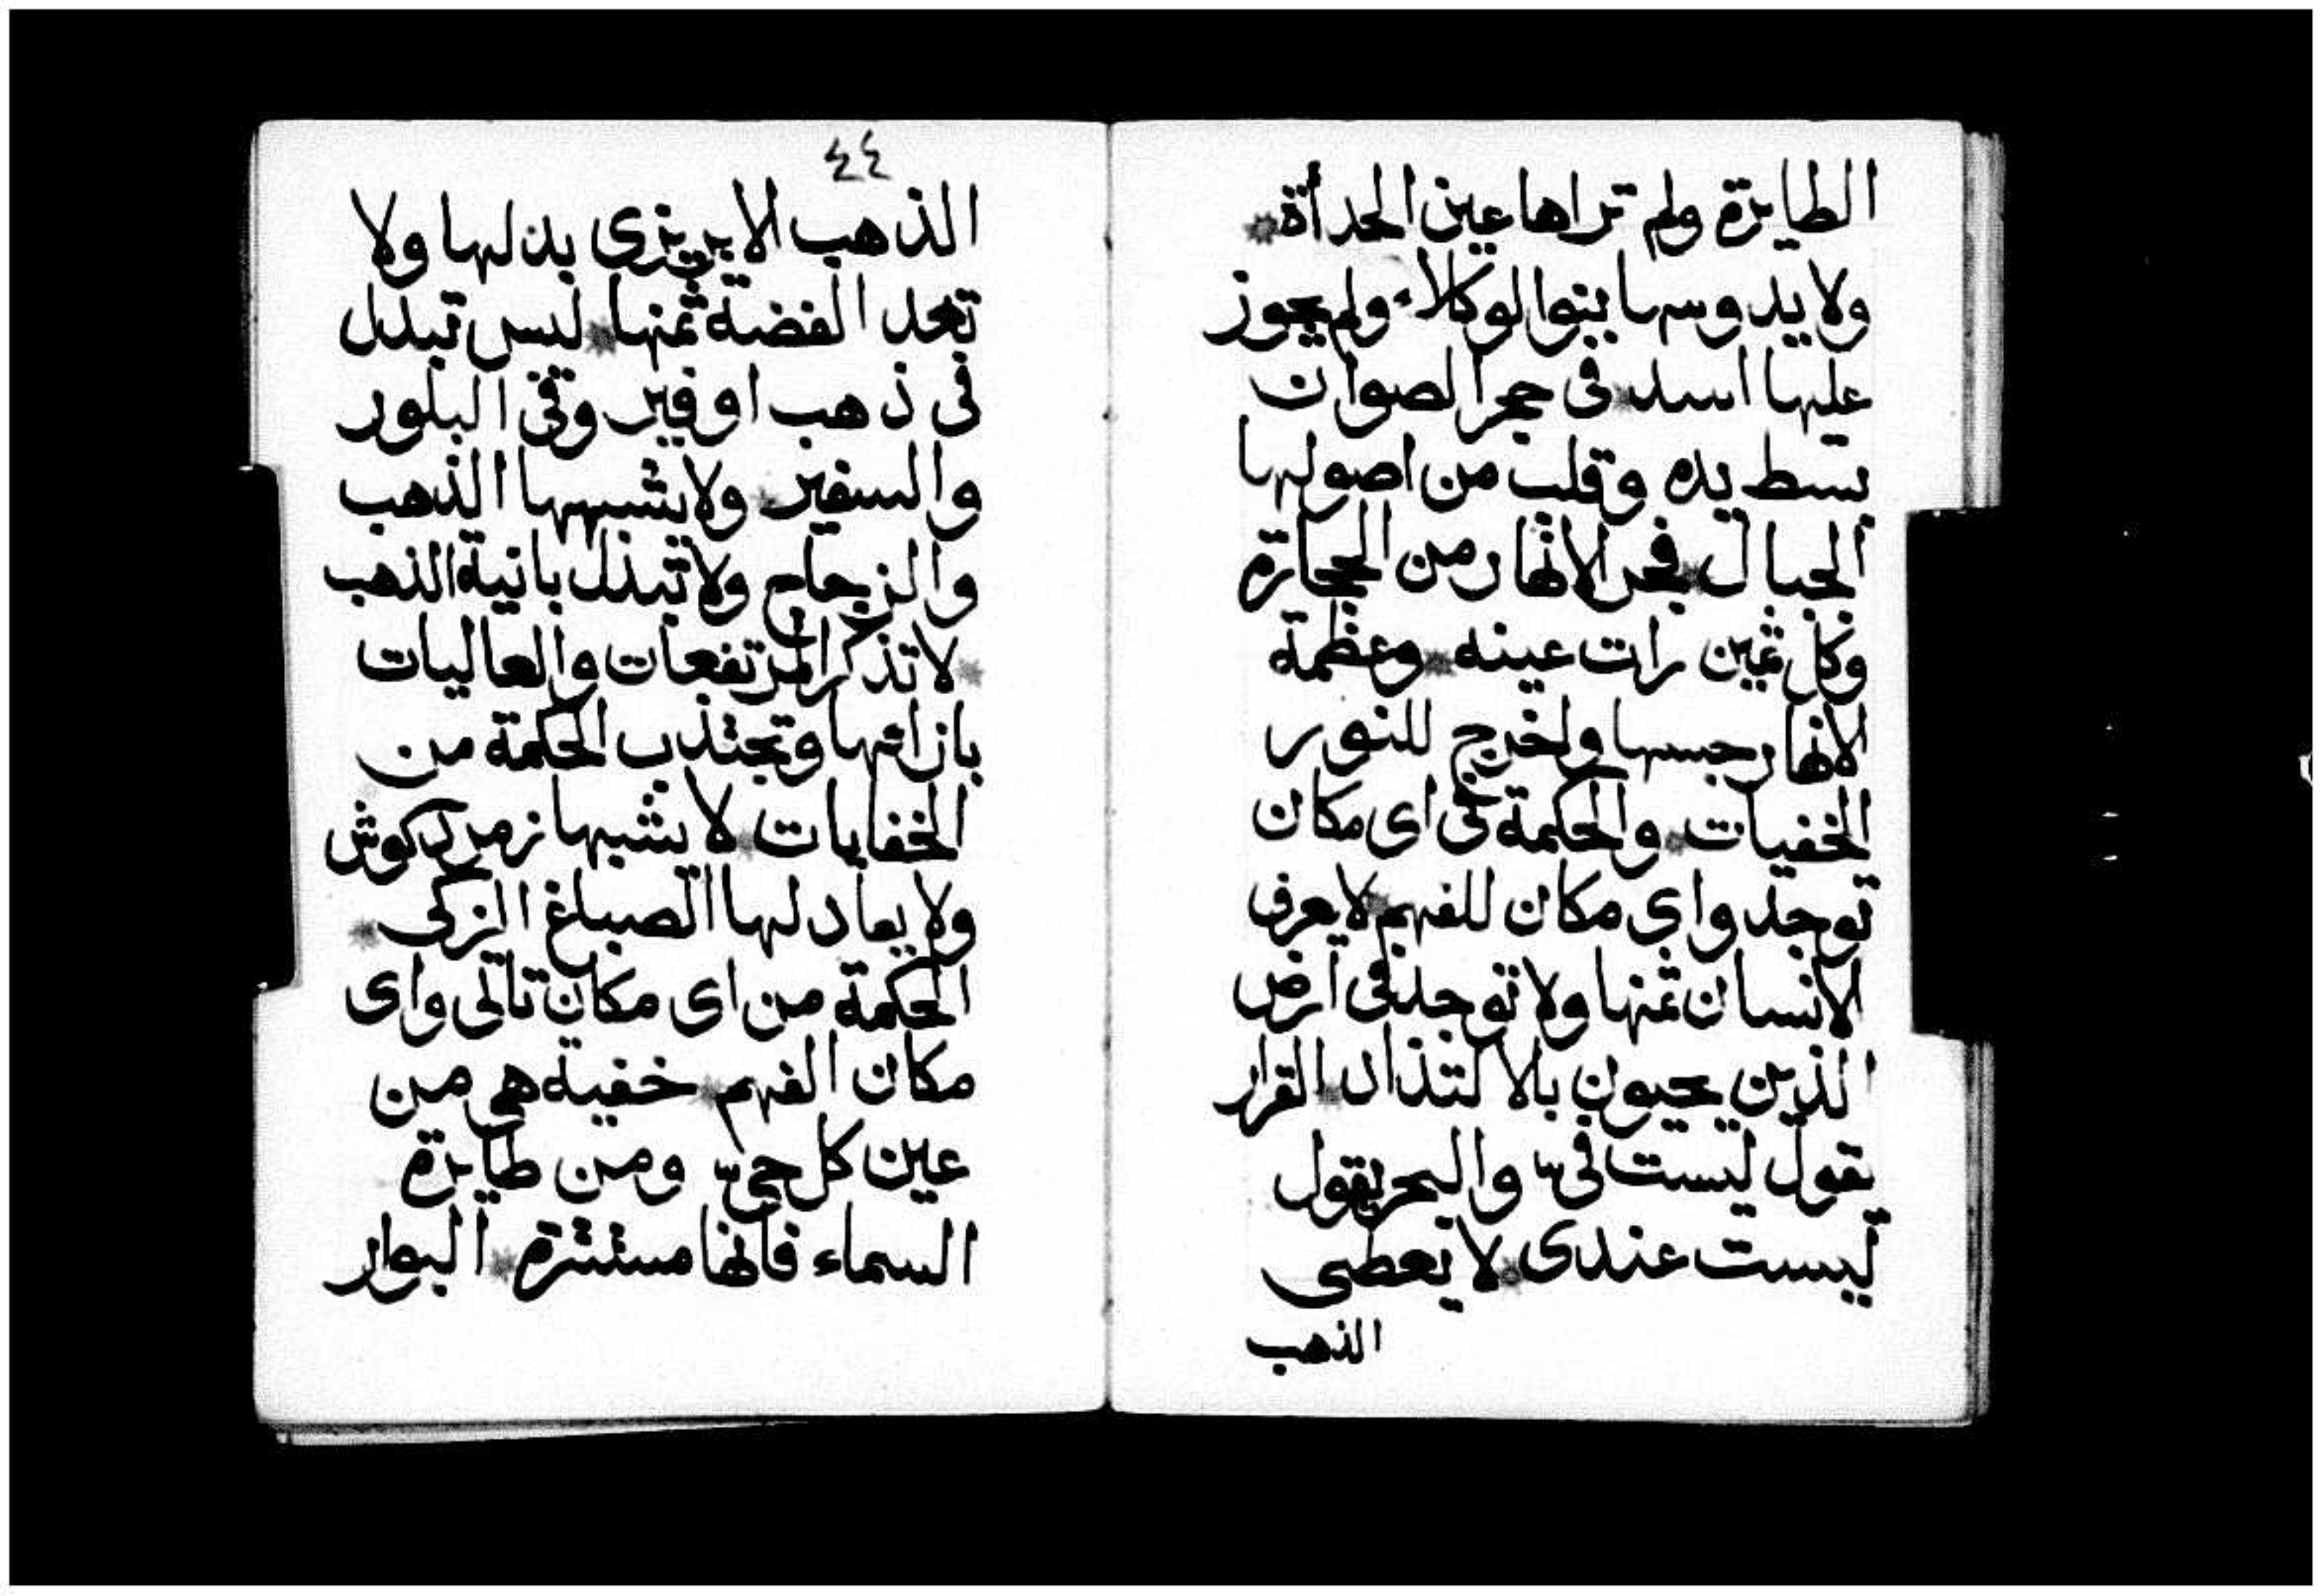 الطايرة ولم تراها عين الحدأة *
ولا يدوسها بنوا لوكلاء ولم يجوز
عليها اسد * فى حجر الصوان
بسط يده وقلب من اصولها
الجبال * فجر الانهار من الحجارة
وكل ثمين رات عينه * وعظمة
الانهار جسها واخرج للنور
الخفيات * والحكمة فى اى مكان
توجد واى مكان للفهم * لا يعرف
الانسان ثمنها ولا توجد فى ارض
الذين يحيون بالالتذاذ * القرار
يقول ليست فىّ والبحر يقول
ليست عندى * لا يعطى
الذهب
٤٤
الذهب الابريزى بدلها ولا
تعد الفضة ثمنها * ليس تبدل
فى ذهب اوفير وفى البلور
والسفير * ولا يشبهها الذهب
والزجاج ولا تبدل بانية الذهب
* لا تذكر المرتفعات والعاليات
بازائها وتجتذب الحكمة من
الخفايات * لا يشبهها زمرد كوش
ولا يعادلها الصباغ الزكى *
الحكمة من اى مكان تاتى واى
مكان الفهم * خفية هى من
عين كل حىّ ومن طايرة
السماء فانها مستترة * البوار